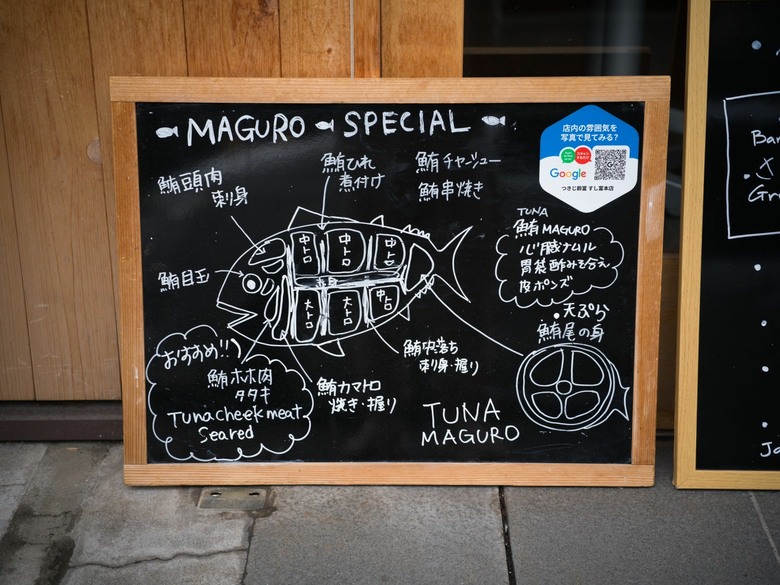 MAGURO SPECIAL
鮪頭肉
刺身
鮪ひれ
煮付け
鮪チャーシュー
鮪串焼き
店内の雰囲気を
写真で見てみる?
Google
つきじ鈴富 すし富本店
鮪目玉
中トロ
中トロ
中トロ
赤身
大トロ
大トロ
中トロ
TUNA
鮪MAGURO
心臓ナムル
胃袋酢みそ合え
皮ポンズ
・天ぷら
鮪尾の身
おすすめ!!
鮪ホホ肉
タタキ
Tuna cheek meat
Seared
鮪カマトロ
焼き・握り
鮪中落ち
刺身・握り
TUNA
MAGURO
Ba
さ
Gr
Ja